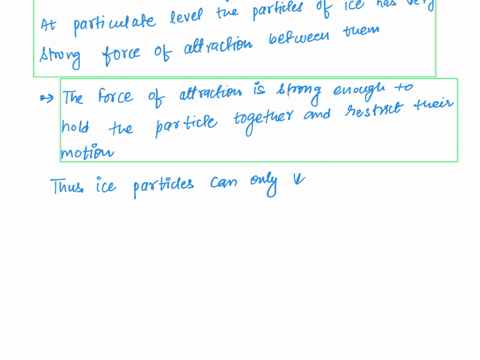 At particulate level the particles of ice has very
strong force of attraction between them
The force of attraction is strong enough to
hold the particle together and restrict their
motion
Thus ice particles can only